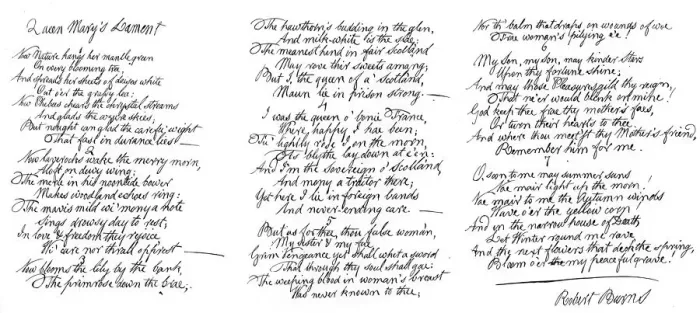 Queen Mary's Lament
Now Nature hangs her mantle green
On every blooming tree,
And spreads her sheets of daisies white
Out o'er the grassy lea:
Now Phœbus chears the chrystal streams
And glads the azure skies;
But nought can glad the careful wight
That fast in durance lies —
2
Now laverocks wake the merry morn,
Aloft on dewy wing;
The merle in his noontide bower
Makes woodland echoes ring:
The mavis mild wi' mony a note
Sings drowsy day to rest;
In love & freedom they rejoice
Wi' care nor thrall opprest —
3
Now blooms the lily by the bank,
The primrose down the brae;
The hawthorn's budding in the glen,
And milk-white is the slae:
The meanest hind in fair Scotland
May rove their sweets amang;
But I, the queen of a' Scotland,
Maun lie in prison strong. —
4
I was the queen o' bonie France,
Where happy I hae been;
Fu' lightly rose I on the morn,
As blythe lay down at e'en:
And I'm the sovereign o' Scotland,
And mony a traitor there;
Yet here I lie in foreign bands
And never-ending care. —
5
But as for thee, thou false woman,
My sister & my fae,
Grim vengeance yet shall whet a sword
That through thy soul shall gae:
The weeping blood in woman's breast
Was never known to thee,
Nor th' balm that draps on wounds of woe
Frae woman's pitying e'e!
6
My Son, my Son, may kinder Stars
Upon thy fortune shine;
And may those Pleasures gild thy reign,
That ne'er would blink on mine!
God keep thee frae thy mother's faes,
Or turn their hearts to thee;
And where thou meet'st thy Mother's friend,
Remember him for me.
7
O, soon to me may summer suns
Nae mair light up the morn!
Nae mair to me the Autumn winds
Wave o'er the yellow corn!
And in the narrow house of Death
Let Winter round me rave;
And the next flowers that deck the spring,
Bloom o'er my peaceful grave!
Robert Burns